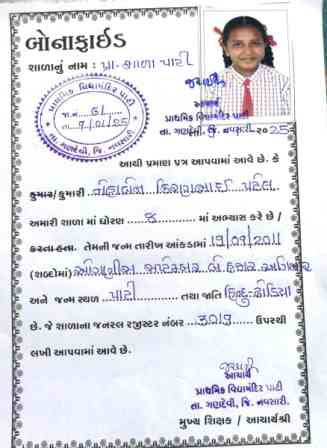 બોનાફાઈડ
શાળાનું નામ : પ્રા-શાળા પાટી
પ્રાથમિક વિદ્યામંદિર પાટી
જા.નં. 61
તા. 7/01/25
તા. ગણદેવી, જિ. નવસારી.
આચાર્ય
પ્રાથમિક વિદ્યામંદિર પાટી
તા. ગણદેવી, જિ. નવસારી. ૨૦25
આથી પ્રમાણ પત્ર આપવામાં આવે છે. કે
કુમાર/કુમારી કિરણભાઈ પટેલ
અમારી શાળા માં ધોરણ 8 માં અભ્યાસ કરે છે /
કરતા હતા. તેમની જન્મ તારીખ આંકડામાં 19/09/2011
(શબ્દોમાં) ઓગણીસ સપ્ટેમ્બર બે હજાર અગિયાર
અને જન્મ સ્થળ પાટી તથા જાતિ હિન્દુ-ધોડિયા
છે. જે શાળાના જનરલ રજીસ્ટર નંબર 3019 ઉપરથી
લખી આપવામાં આવે છે.
આચાર્ય
પ્રાથમિક વિદ્યામંદિર પાટી
તા. ગણદેવી, જિ. નવસારી.
મુખ્ય શિક્ષક / આચાર્યશ્રી